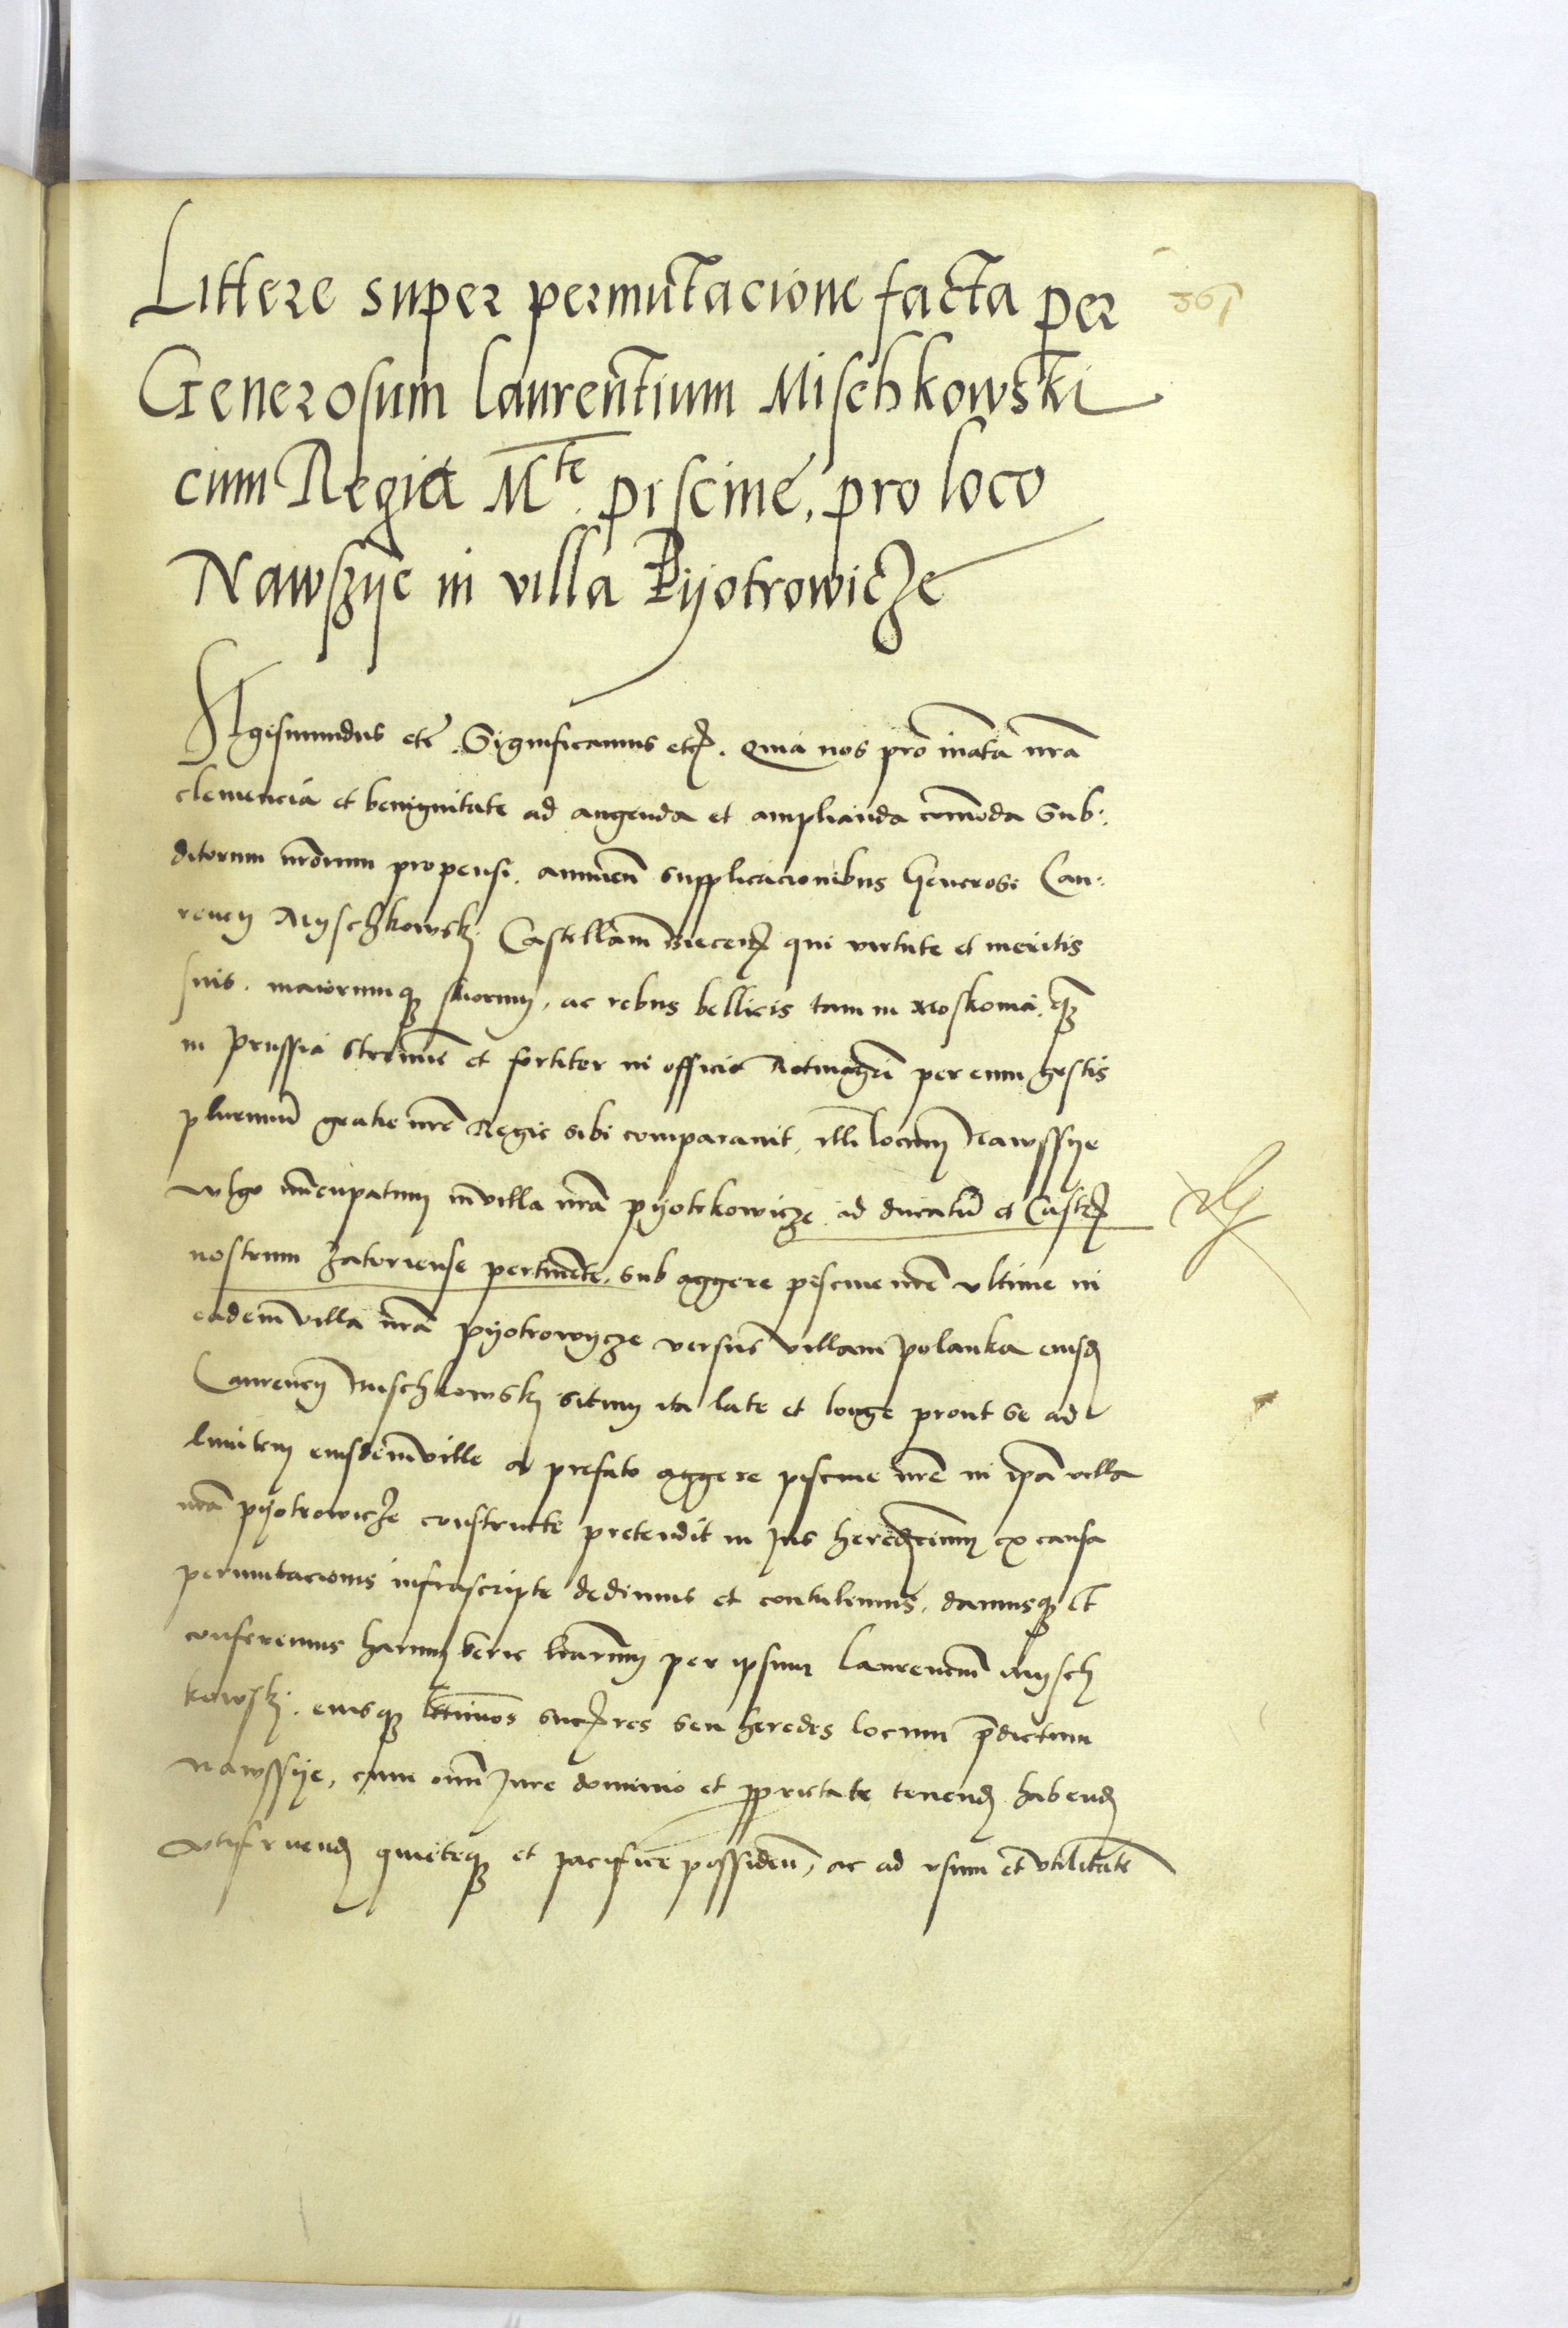 Littere super permutacione facta per 361
Generosum laurentium Mischkowski
cum Regia M^te. piscine, pro loco
Nawszye in villa Pyotrowicze
Sigismundus etc̄. Significamus etc. Quia nos pro inata nrā
clemencia et benignitate ad augenda et amplianda com̄oda Sub:
ditorum nrōrum propensi. annuen̄ supplicacionibus Generosi Lau:
rency Myschkowsky Castellani Biecen̄ qui virtute et meritis
suis. maiorumq₃ suorum, ac rebus bellicis tam in Moskouia, q̄₃
in Prussia strenue et fortiter in officio Rotmagr̄i per eum gestis
plurimum gratie nrē Regie sibi comparauit, illi locum Nawssye
wlgo nūcupatum in villa nrā pyotrkowicze ad ducatū et Castr̄
nostrum Zatoriense pertinente, sub aggere piscine nrē vltime in
eadem villa nrā pyotrowycze versus villam polanka eiusd̄
Laurency Mischkowsky situm ita late et longe prout se ad
limitem eiusdem ville a prefato aggere piscine nrē in ip̄a villa
nrā pyotrowicze constructe pretendit in Jus hered̄ium ex causa
permutacionis infrascripte dedimus et contulimus, damusq₃ et
conferimus harum serie lr̄arum per ipsum laurencium Mysch
kowsky. eiusq₃ ltt̄imos succ̄res seu heredes locum p̄dictum
Nawssye, cum om̄i Jure dominio et pprietate tenend̄ habend̄
vtifruend̄ quieteq₃ et pacifice possiden̄, ac ad vsum et vtilitatē